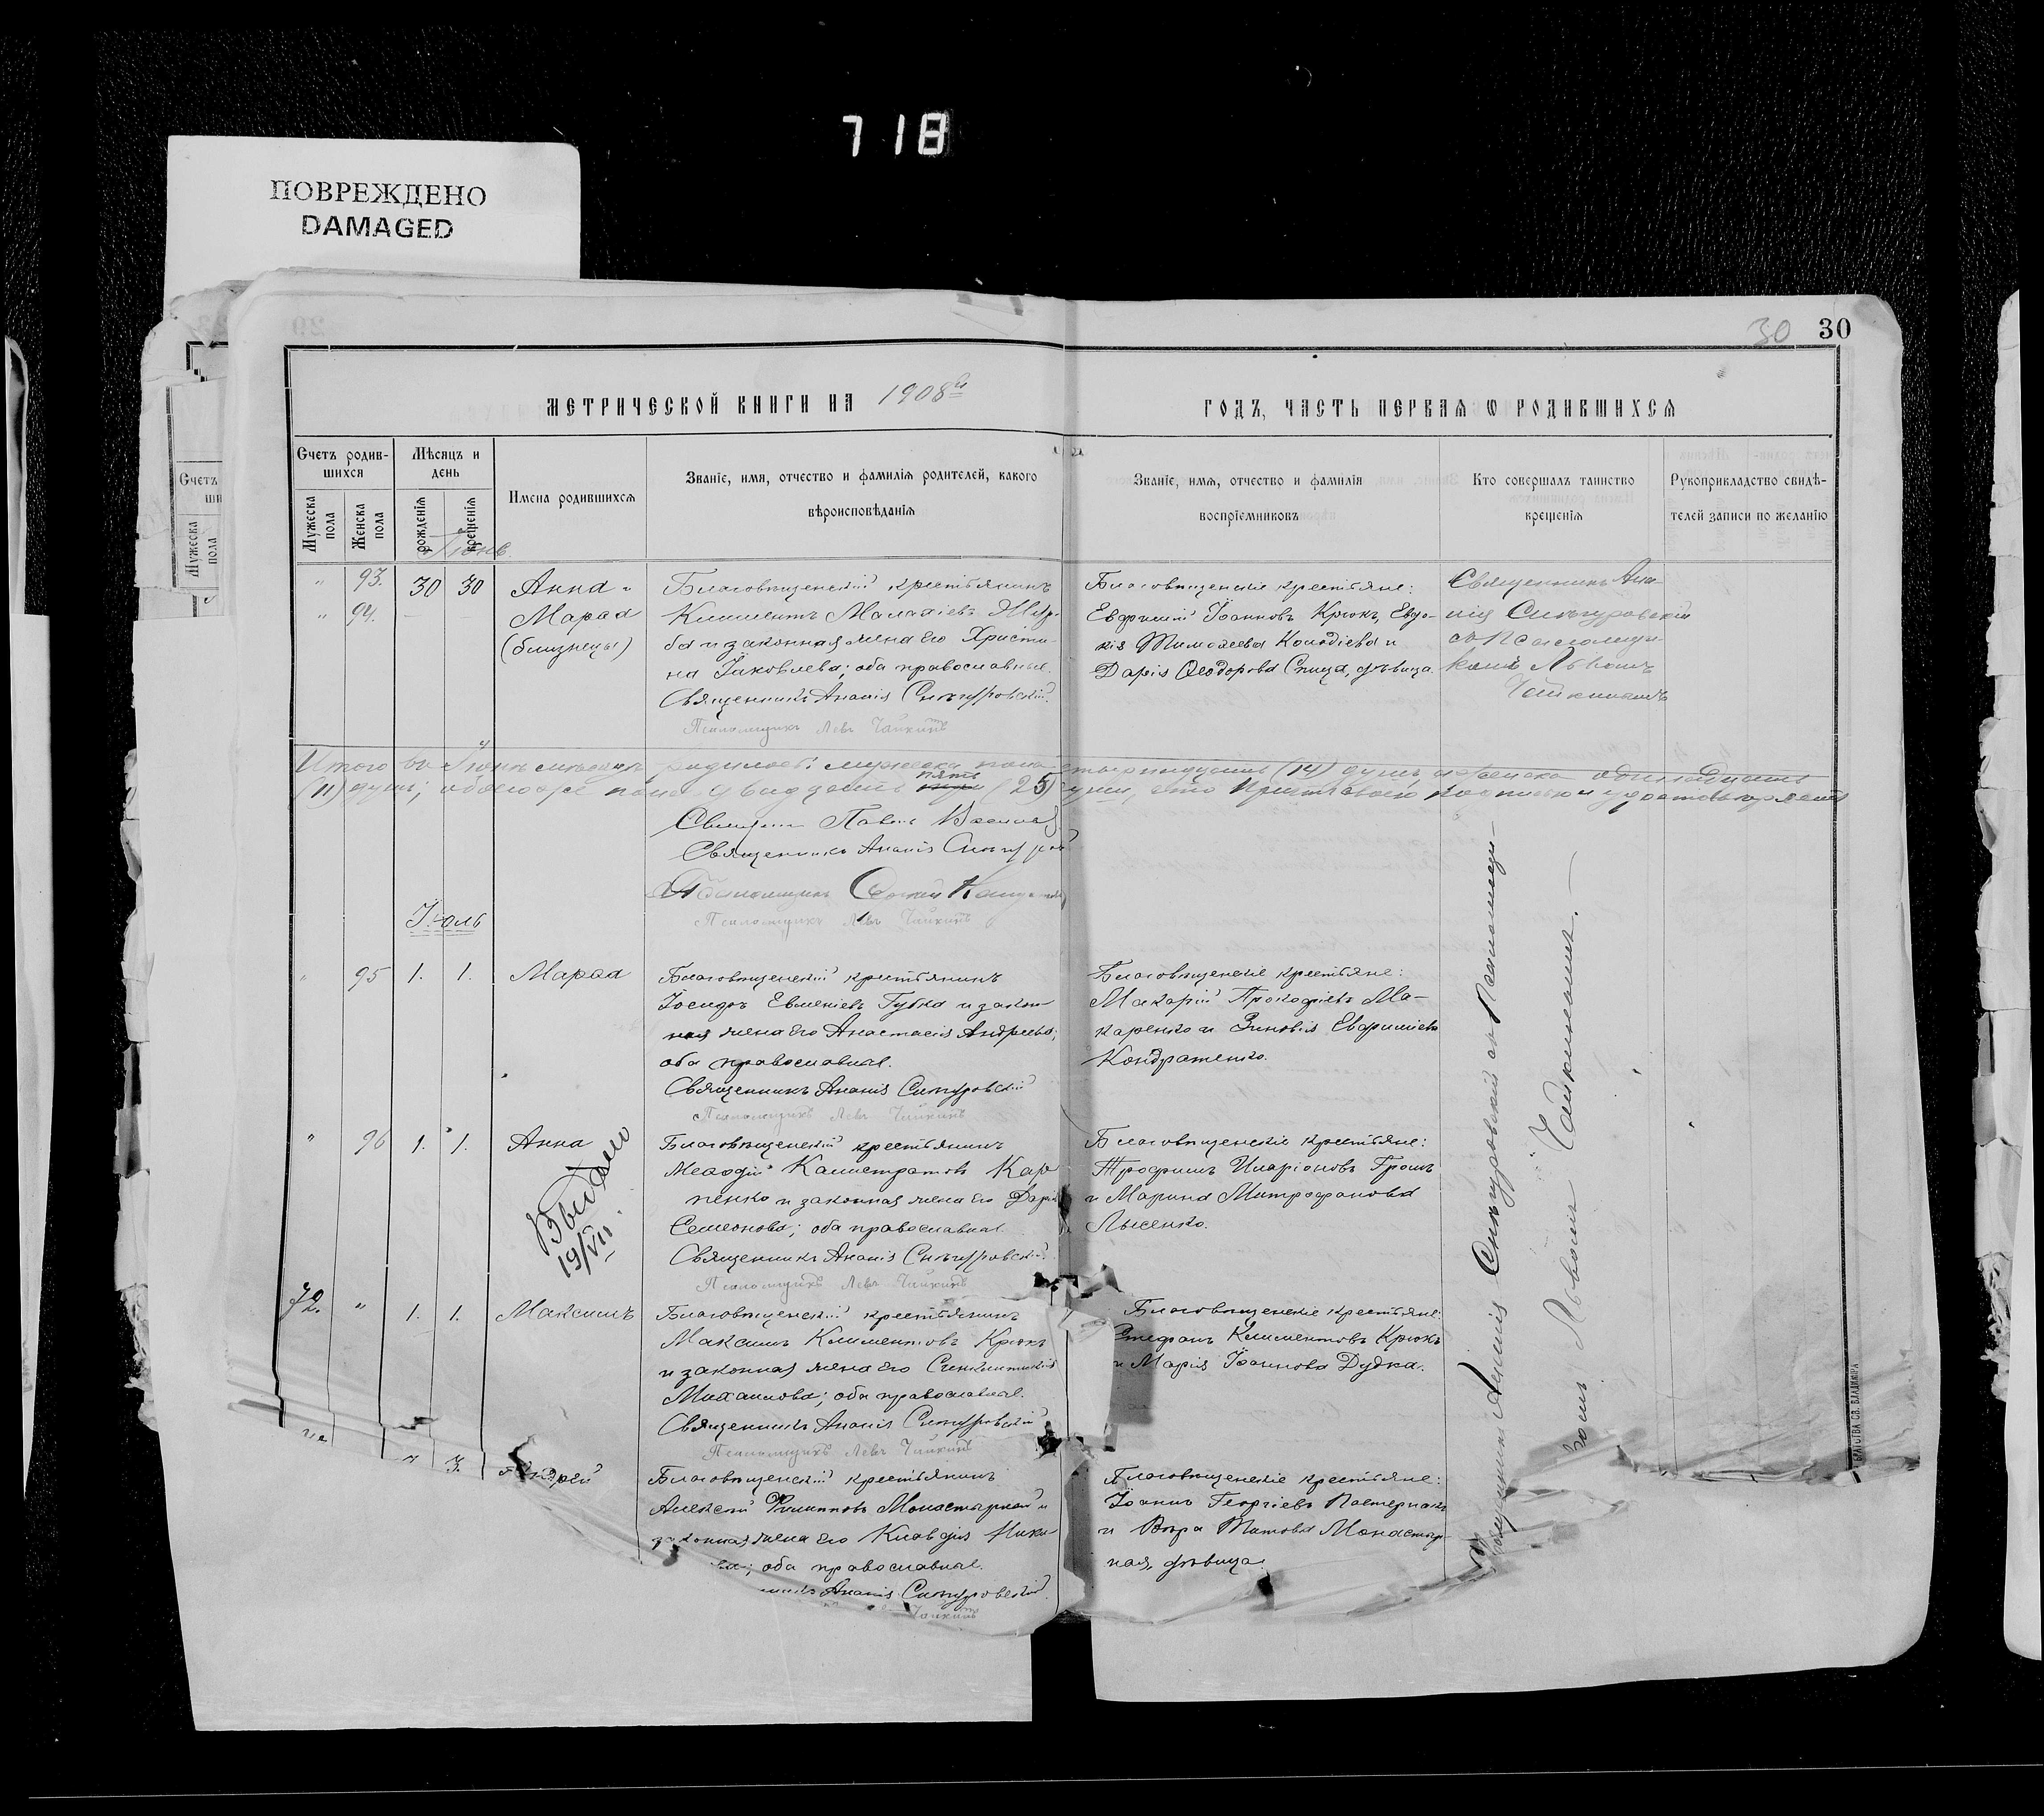 718
ПОВРЕЖДЕНО
DAMAGED
30 30
МЕТРИЧЕСКОЙ КНИГИ НА 1908й
ГОДЪ, ЧАСТЬ ПЕРВАЯ Ѡ РОДИВШИХСЯ
Счетъ родив-
шихся
Мужеска
пола
Женска
пола
Мѣсяцъ и
день
рожденія
крещенія
Имена родившихся
Званіе, имя, отчество и фамилія родителей, какого
вѣроисповѣданія
Званіе, имя, отчество и фамилія
воспріемниковъ
Кто совершалъ таинство
крещенія
Рукоприкладство свидѣ-
телей записи по желанію
Счетъ
ши
Мужеска
пола
Іюнь
" 93. 30 30 Анна и
" 94. — — Марѳа
(близнецы)
Благовѣщенскій крестьянинъ
Климентъ Малахіевъ
ба и законная жена его Христи-
на Іаковлева; оба православные.
Священникъ Ананія Снѣгуровскій
Псаломщикъ Левъ Чайкинъ
Благовѣщенскіе крестьяне:
Евфимій Іоанновъ Крюкъ, Евдо-
кія Тимоѳеева Колодіева и
Дарія Ѳеодорова Спица, дѣвица.
Священникъ Ана-
нія Снѣгуровскій
съ Псаломщи-
комъ Львомъ
Чайкинымъ
Итого въ Іюнѣ мѣсяцѣ родилось: мужеска пола четырнадцать (14) душъ, а женска одиннадцать
(11) душъ; обоего же пола двадцать пять (25) душъ, что
Священникъ Павелъ
Священникъ Ананія Снѣгуровскій
Псаломщикъ
Псаломщикъ Левъ Чайкинъ
Іюль
" 95 1. 1. Марѳа
Благовѣщенскій крестьянинъ
Іосифъ Евменіевъ Губка и закон-
ная жена его Анастасія Андреева;
оба православные.
Священникъ Ананія Снѣгуровскій
Псаломщикъ Левъ Чайкинъ
Благовѣщенскіе крестьяне:
Макарій Прокофіевъ Ма-
каренко и Зиновія Евфиміева
Кондратенко.
" 96 1. 1. Анна
Выдано
19/VII
Благовѣщенскій крестьянинъ
Меѳодій Каллистратовъ Кар
пенко и законная жена его Дарія
Семеонова; оба православные.
Священникъ Ананія Снѣгуровскій
Псаломщикъ Левъ Чайкинъ
Благовѣщенскіе крестьяне:
Трофимъ Иларіоновъ Громъ
и Марина Митрофанова
Лысенко.
72. " 1. 1. Максимъ
Благовѣщенскій крестьянинъ
Максимъ Климентовъ Крюкъ
и законная жена его Синклитикія
Михаилова; оба православные.
Священникъ Ананія Снѣгуровскій
Псаломщикъ Левъ Чайкинъ
Благовѣщенскіе крестьяне:
Стефанъ Климентовъ Крюкъ
и Марія Іоаннова Дудка.
3. Андрей
Благовѣщенскій крестьянинъ
Алексій Филипповъ Монастырной и
законная жена его Клавдія Ники-
; оба православные.
Ананія Снѣгуровскій
Чайкинъ
Благовѣщенскіе крестьяне:
Іоаннъ Георгіевъ Пастернакъ
и Вѣра Титова Монастыр-
ная, дѣвица.
Священникъ Ананія Снѣгуровскій съ Псаломщи-
комъ Львомъ Чайкинымъ.
БРАТСТВА СВ. ВЛАДИМІРА